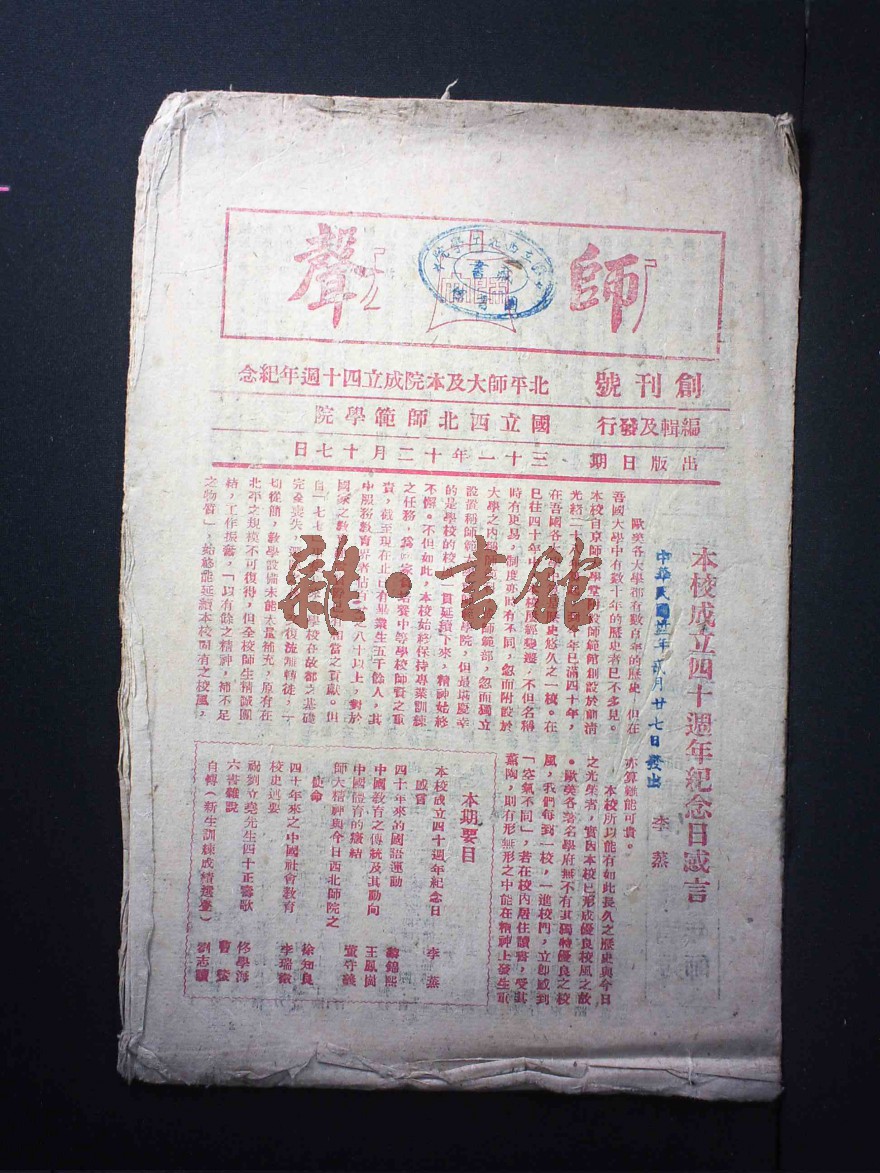 師聲
創刊號 北平師大及本院成立四十週年紀念
編輯及發行 國立西北師範學院
出版日期 三十一年十二月十七日
本校成立四十週年紀念日感言
李蒸
歐美各大學都有數百年的歷史,但在
吾國大學中有數十年的歷史者已不多見。
本校自京師大學堂
師範館創設於前清
光緒二十
年已滿四十年,
在吾國各
歷史悠久之一校。在
已往四十年中
校度經變遷,不但名稱
時有更易,制度亦時有不同,忽而附設於
大學之內
師範部,忽而獨立
設置稱師範大
學院,但最堪慶幸
的是學校的校
一貫延續下來,精神始終
不懈。不但如此,本校始終保持專業訓練
之任務,為國家
培養中等學校師資之重
責,截至現在止已有畢業生五千餘人,其
中服務教育界者佔百分之八十以上,對於
國家之教
相當之貢獻。但
自「七七
學校在故都之基礎
完全喪失,
復流離轉徙,一
切從簡,教學設備未能大量補充,原有在
北平之規模不可復得,但全校師生精誠團
結,工作振奮,「以有餘之精神,補不足
之物質」,始終能延續本校固有之校風,
亦算難能可貴。
本校所以能有如此長久之歷史與今日
之光榮者,實因本校已形成優良校風之故
。歐美各著名學府無不有其獨特優良之校
風,我們每到一校,一進校門,立即感到
「空氣不同」,若在校內居住讀書,受其
薰陶,則有形無形之中能在精神上發生重
本期要目
本校成立四十週年紀念日
感言 李蒸
四十年來的國語運動 黎錦熙
中國教育之傳統及其動向 王鳳崗
中國體育的癥結 董守義
師大精神與今日西北師院之
使命 徐知良
四十年來之中國社會教育 李瑞徵
校史述要
祝劉立堯先生四十正壽歌 佟學海
六書雜說 曹鰲
自傳(新生訓練成績選登) 劉志讀
中華民國卅一年
月廿七日發出
雜·書館